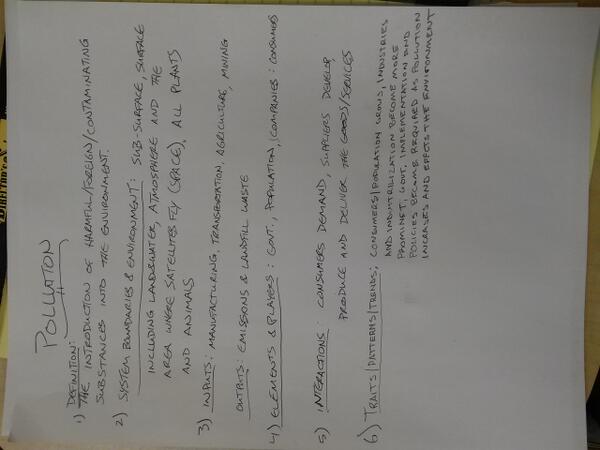 POLLUTION
1) DEFINITION:
THE INTRODUCTION OF HARMFUL/FOREIGN/CONTAMINATING
SUBSTANCES INTO THE ENVIRONMENT.
2) SYSTEM BOUNDARIES & ENVIRONMENT: SUB-SURFACE, SURFACE
INCLUDING LAND&WATER, ATMOSPHERE AND THE
AREA WHERE SATELLITES FLY (SPACE), ALL PLANTS
AND ANIMALS
3) INPUTS: MANUFACTURING, TRANSPORTATION, AGRICULTURE, MINING
OUTPUTS: EMISSIONS & LANDFILL WASTE
4) ELEMENTS & PLAYERS: GOVT., POPULATION, COMPANIES: CONSUMERS
5) INTERACTIONS: CONSUMERS DEMAND, SUPPLIERS DEVELOP,
PRODUCE AND DELIVER THE GOODS/SERVICES
6) TRAITS/PATTERNS/TRENDS: CONSUMERS/POPULATION GROWS, INDUSTRIES
AND INDUSTRILIZATION BECOME MORE
PROMINET, GOVT. IMPLEMENTATION AND
POLICIES BECOME REQUIRED AS POLLUTION
INCREASES AND EFFECTS THE ENVIRONMENT
DIRECTOR'S